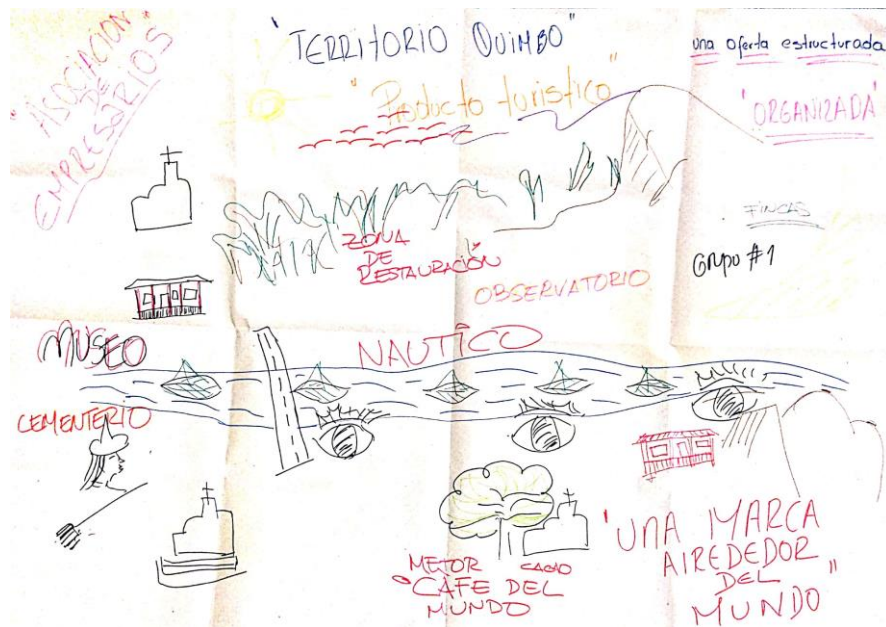 "ASOCIACION
DE
EMPRESARIOS
"TERRITORIO QUIMBO"
"Producto turistico"
una oferta estructurada
"ORGANIZADA"
FINCAS
Grupo #1
ZONA
DE
RESTAURACIÓN
OBSERVATORIO
MUSEO
NAUTICO
CEMENTERIO
MEJOR CACAO
"CAFE DEL
MUNDO
"UNA MARCA
AIREDEDOR
DEL
MUNDO"